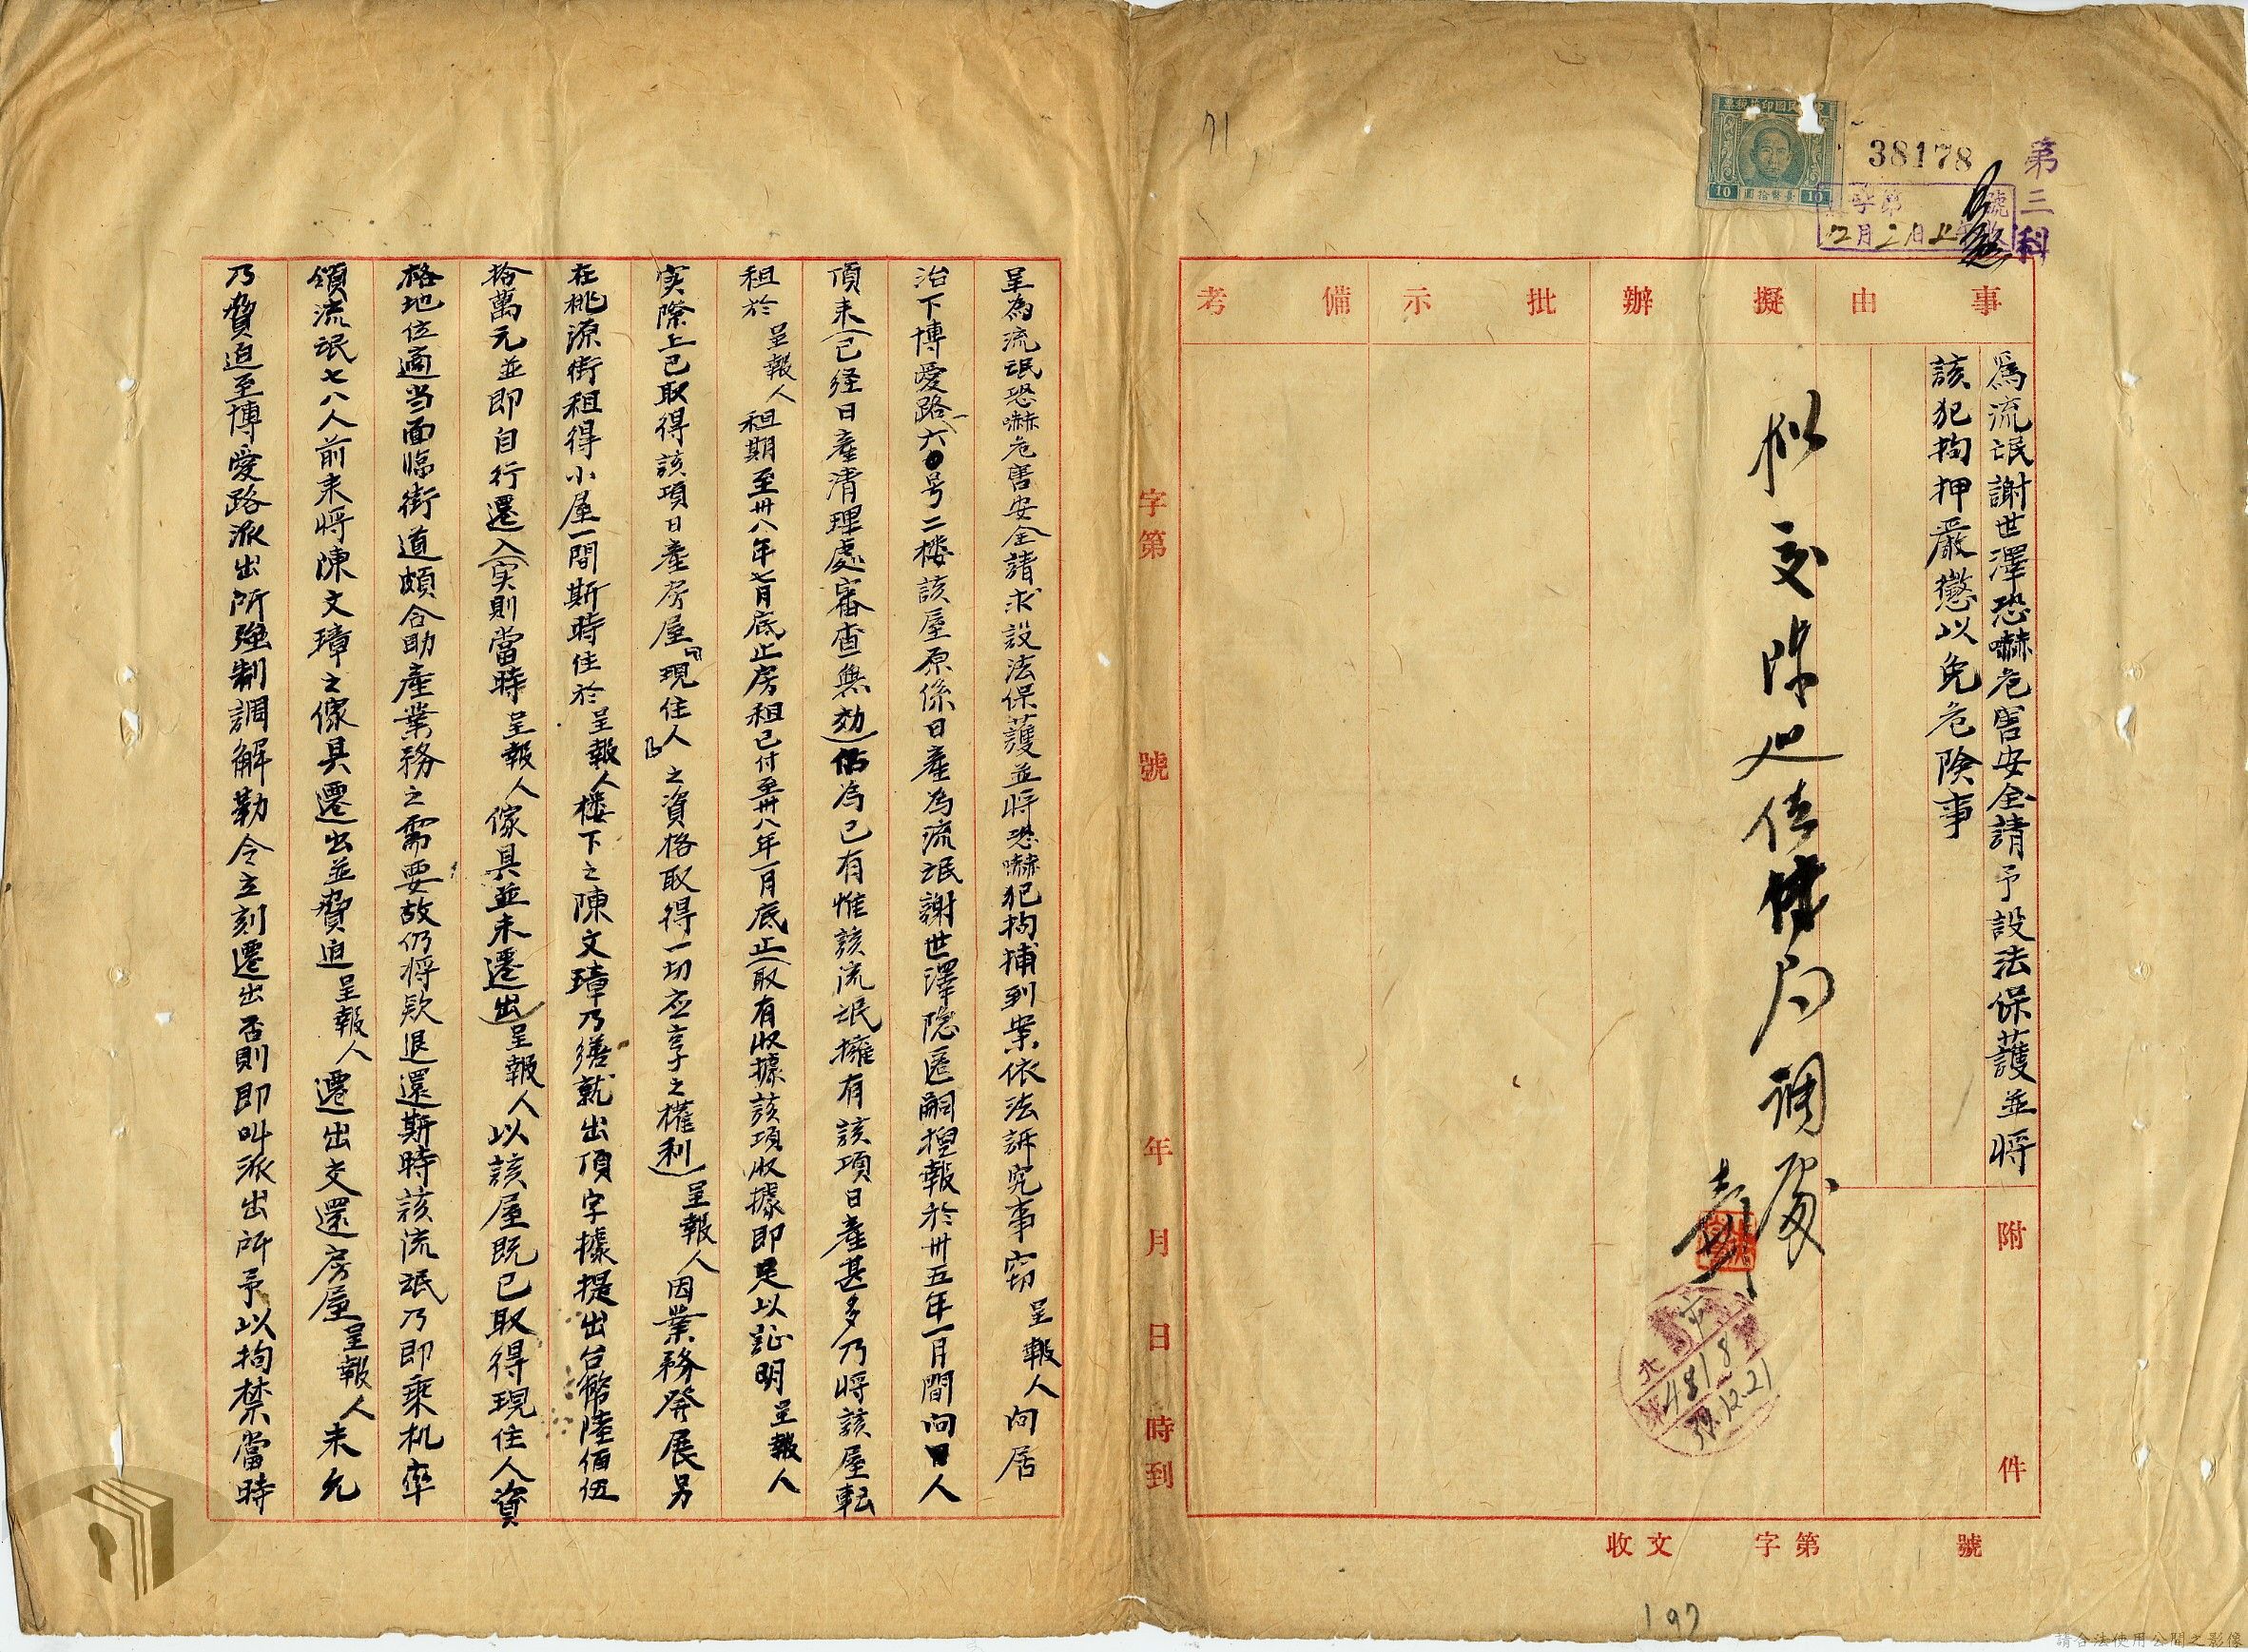 71
38178
第三科
字第 號
12月2日
事由
擬辦
批示
備考
為流氓謝世澤恐嚇危害安全請予設法保護並將
該犯拘押嚴懲以免危險事
附件
北
4818
37.12.21
收文 字第 號
字第 號 年 月 日 時到
呈為流氓恐嚇危害安全請求設法保護並將恐嚇犯拘捕到案依法訴究事竊呈報人向居
治下博愛路一六〇号二楼該屋原係日產為流氓謝世澤隐匿嗣揑報於卅五年一月間向日人
頂来(已経日產清理處審查無効)佔為已有惟該流氓擁有該項日產甚多乃將該屋転
租於呈報人租期至卅八年七月底止房租已付至卅八年一月底止(取有收據該項收據即足以証明呈報人
実際上已取得該項日產房屋『現住人』之資格取得一切应享之權利)呈報人因業務發展另
在桃源街租得小屋一間斯時住於呈報人楼下之陳文璋乃繕就出頂字據提出台幣陸佰伍
拾萬元並即自行遷入(実則當時呈報人傢具並未遷出)呈報人以該屋既已取得現住人資
格地位適当面臨街道頗合助產業務之需要故仍將欵退還斯時該流氓乃即乘机率
領流氓七八人前来將陳文璋之傢具遷出並脅迫呈報人遷出交還房屋呈報人未允
乃脅迫至博愛路派出所強制調解勒令立刻遷出否則即叫派出所予以拘禁當時
197
請合法使用公開之影像